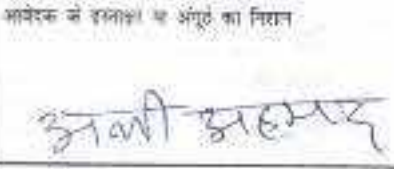 आवेदक के हस्ताक्षर या अंगूठे का निशान
अली अहमद